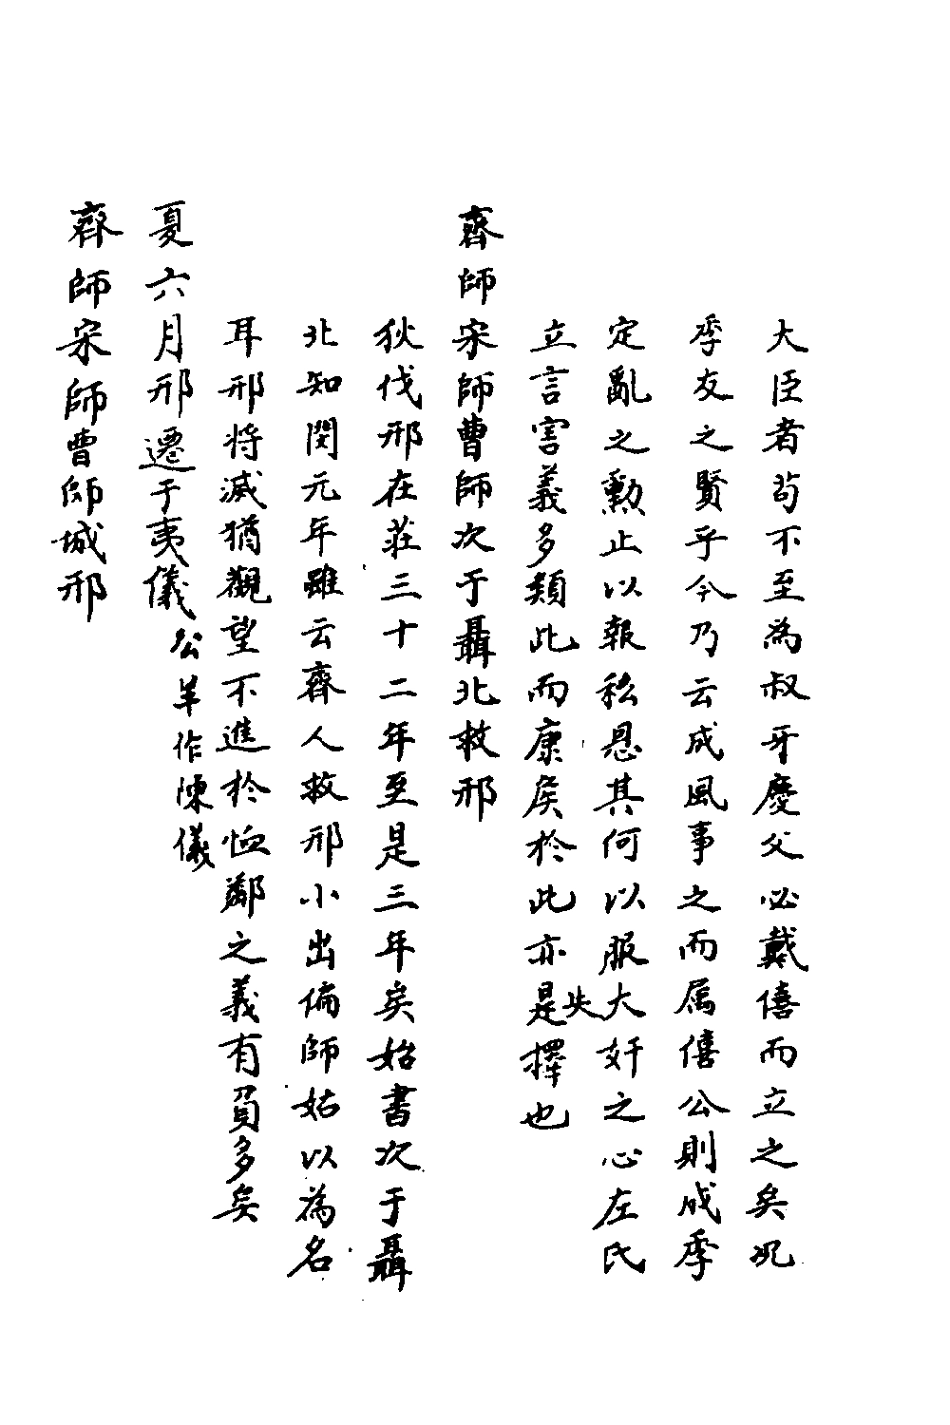 大臣者苟不至為叔牙慶父必戴僖而立之矣况
季友之賢乎今乃云成風事之而属僖公則成季
定亂之勲止以報私恩其何以服大奸之心左氏
立言害義多類此而康侯於此亦是失擇也
齊師宋師曹師次于聶北救邢
狄伐邢在莊三十二年至是三年矣始書次于聶
北知閔元年雖云齊人救邢小出偏師姑以為名
耳邢将滅猶觀望不進於恤鄰之義有負多矣
夏六月邢遷于夷儀公羊作陳儀
齊師宋師曹師城邢